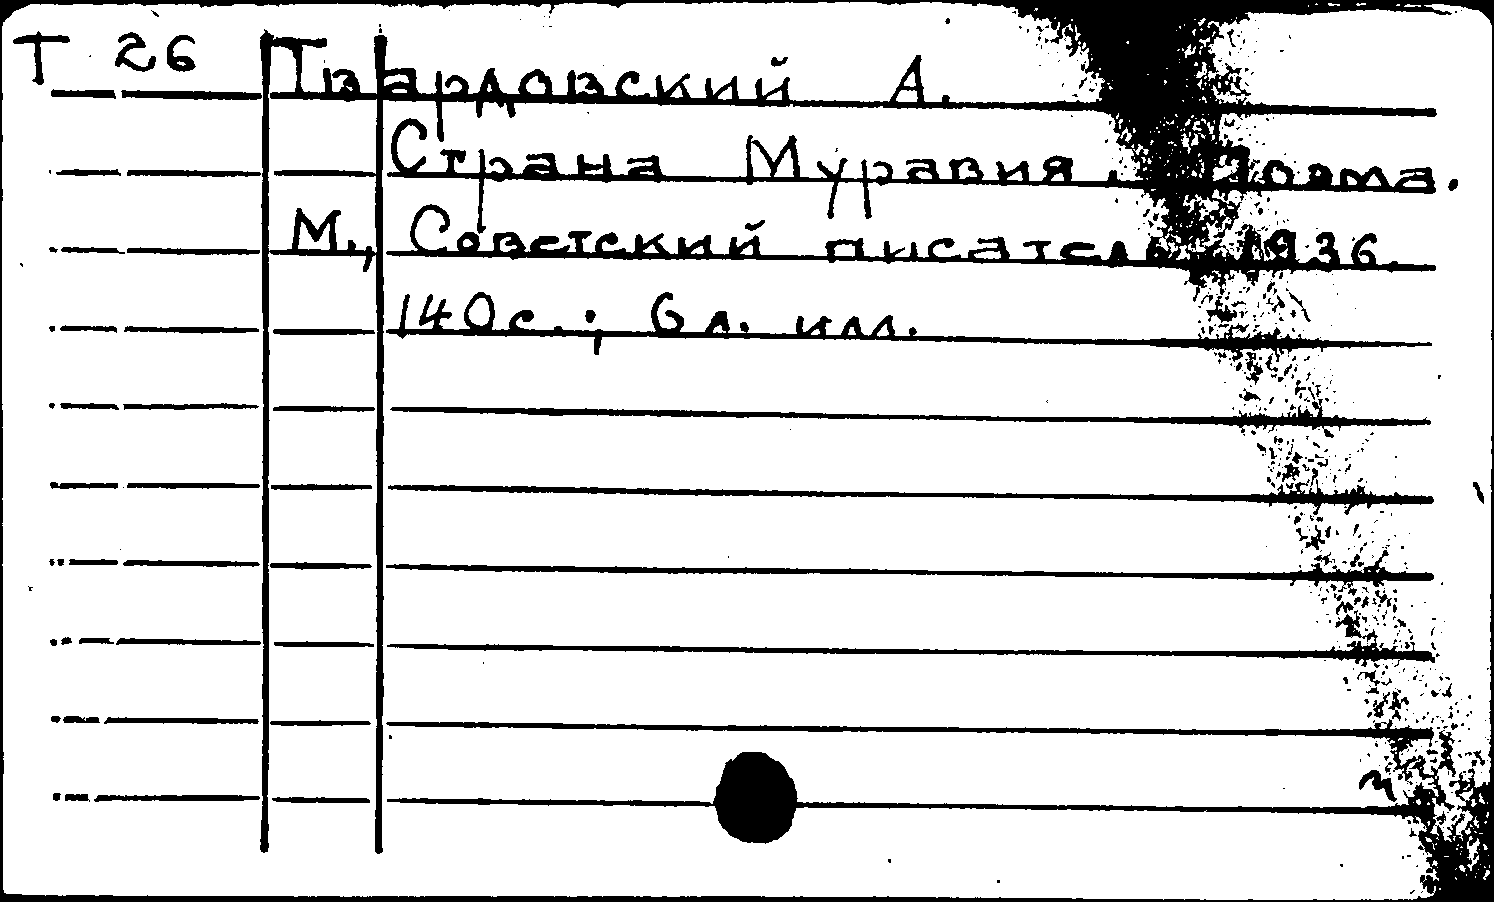 Т 26 Твардовский А.
Страна Муравия. Поэма.
М., Советский писатель, 1936.
140 с.; 6 л. илл.